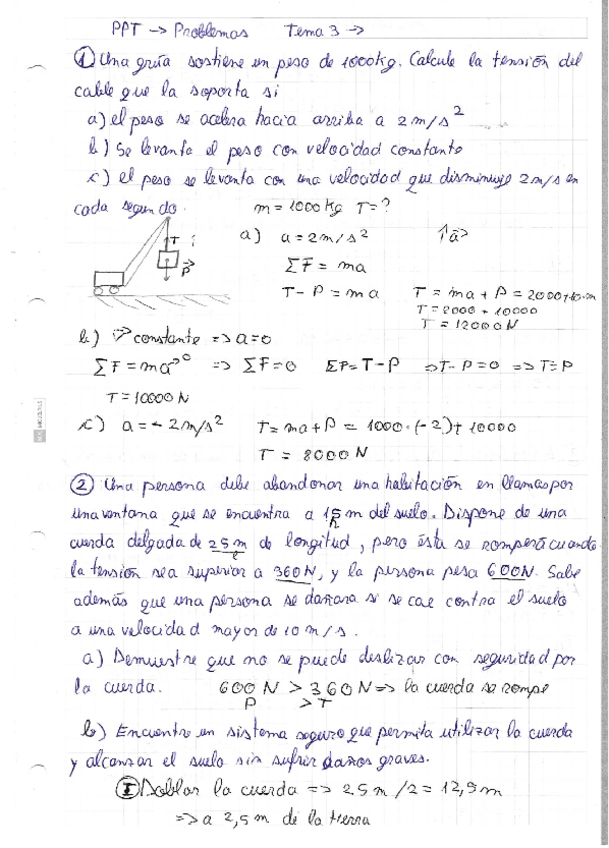 PPT → Problemas Tema 3 →
① Una grúa sostiene un peso de 1000kg. Calcule la tensión del
cable que la soporta si
a) el peso se acelera hacia arriba a 2 m/s²
b) Se levanta el peso con velocidad constante
c) el peso se levanta con una velocidad que disminuye 2 m/s en
cada segundo. m = 1000 kg T = ?
a) a = 2 m/s² ↑a→
T
P→
ΣF = ma
T - P = ma T = ma + P = 2000 + 10·m
T = 2000 + 10000
T = 12000 N
b) V→ constante => a = 0
ΣF = ma→0 => ΣF = 0 ΣF = T - P => T - P = 0 => T = P
T = 10000 N
c) a = - 2 m/s² T = ma + P = 1000 · (-2) + 10000
T = 8000 N
② Una persona debe abandonar una habitación en llamas por
una ventana que se encuentra a 15 m del suelo. Dispone de una
h
cuerda delgada de 25 m de longitud, pero ésta se romperá cuando
la tensión sea superior a 360 N, y la persona pesa 600 N. Sabe
además que una persona se dañara si se cae contra el suelo
a una velocidad mayor de 10 m/s.
a) Demuestre que no se puede deslizar con seguridad por
la cuerda. 600 N > 360 N => la cuerda se rompe
P > T
b) Encuentre un sistema seguro que permita utilizar la cuerda
y alcanzar el suelo sin sufrir daños graves.
Ⓘ Doblar la cuerda => 25 m / 2 = 12,5 m
=> a 2,5 m de la tierra